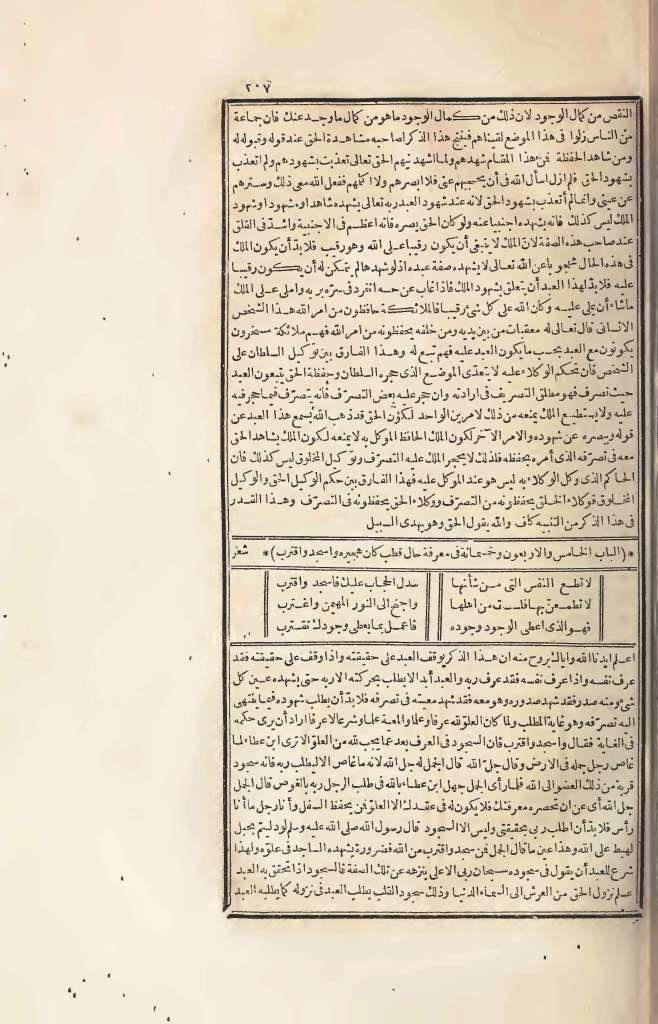 ٢٠٧
النقص من كمال الوجود لان ذلك من كمال الوجود ما هو من كمال ما وجد عنك فان جماعة
من الناس زلوا فى هذا الموضع لقيناهم فينتج هذا الذكر لصاحبه مشاهدة الحق عند قوله وقبوله له
ومن شاهد الحفظة فمن هذا المقام شهدهم ولما اشهدنيهم الحق تعالى تعذبت بشهودهم ولم أتعذب
بشهود الحق فلم ازل اسأل الله فى أن يحجبهم عنى فلا ابصرهم ولا اكلهم ففعل الله معى ذلك وسترهم
عن عينى وانما لم أتعذب بشهود الحق لانه عند شهود العبد ربه تعالى يشهده شاهدا ومشهودا وشهود
الملك ليس كذلك فانه يشهده اجنبيا عنه ولو كان الحق بصره فانه اعظم فى الاجنبية واشد فى القلق
عند صاحب هذه الصفة لان الملك لا ينبغى أن يكون رقيبا على الله وهو رقيب فلا بد أن يكون الملك
فى هذه الحال محجوبا عن الله تعالى لا يشهد صفة عبده اذ لو شهدها لم يتمكن له أن يكون رقيبا
عليه فلا بد لهذا العبد أن يتعلق بشهود الملك فاذا غاب عن حسه انفرد فى سره بربه واملى على الملك
ما شاء أن يملى عليه وكان الله على كل شئ رقيبا فالملائكة حافظون من امر الله هذا الشخص
الانسانى قال تعالى له معقبات من بين يديه ومن خلفه يحفظونه من امر الله فهم ملائكة مسخرون
يكونون مع العبد بحسب ما يكون العبد عليه فهم تبع له وهذا الفارق بين توكيل السلطان على
الشخص فان تحكم الوكلاء عليه لا يتعدى الموضع الذى حجره السلطان وحفظة الحق يتبعون العبد
حيث تصرف فهو مطلق التصريف فى ارادته وان حجر عليه بعض التصرف فانه يتصرف فيما حجر فيه
عليه ولا يستطيع الملك يمنعه من ذلك لامرين الواحد لكون الحق قد ذهب الله بسمع هذا العبد عن
قوله وببصره عن شهوده والامر الآخر لكون الملك الحافظ الموكل به لا يمنعه لكون الملك يشاهد الحق
معه فى تصرفه الذى أمره بحفظه فلذلك لا يحجر الملك عليه التصرف وتوكيل المخلوق ليس كذلك فان
الحاكم الذى وكل الوكلاء به ليس هو عند الموكل عليه فهذا الفارق بين حكم الوكيل الحق والوكيل
المخلوق فوكلاء الخلق يحفظونه من التصرف ووكلاء الحق يحفظونه فى التصرف وهذا القدر
فى هذا الذكر من التنبيه كاف والله يقول الحق وهو يهدى السبيل
* (الباب الخامس والاربعون وخمسمائة فى معرفة حال قطب كان هجيره واسجد واقترب) * شعر
لا تطع النفس التى من شأنها سدل الحجاب عليك فاسجد واقترب
لا تطمعن بها فلست من اهلها واجنح الى النور المهيمن واغترب
فهو الذى اعطى الوجود وجوده فاعمل بما يعطى وجودك تقترب
اعلم ايدنا الله واياك بروح منه ان هذا الذكر يوقف العبد على حقيقته واذا وقف على حقيقته فقد
عرف نفسه واذا عرف نفسه فقد عرف ربه والعبد أبدا لا يطلب بحركته الا ربه حتى يشهده عين كل
شئ ومنه صدر فقد شهد صدوره وهو معه فقد شهد معيته فى تصرفه فلا بد أن يطلب شهوده فيما ينتهى
اليه تصرفه وهو غاية المطلب ولما كان العلو لله عرفا وعلما والمعية علما وشرعا لا عرفا اراد أن يرى حكمه
فى الغاية فقال واسجد واقترب فان السجود فى العرف بعد عما يجب لله من العلو الا ترى ابن عطاء لما
غاص رجل جمله فى الارض وقال جل الله قال الجمل له جل الله لانه ما غاص الا ليطلب ربه فانه سجود
قربة من ذلك العضو الى الله فلما رأى الجمل جهل ابن عطاء بالله فى طلب الرجل ربه بالغوص قال الجمل
جل الله أى عن ان تحصره معرفتك فلا يكون له فى عقدك الا العلو فمن يحفظ السفل وأنا رجل ما أنا
رأس فلا بد أن اطلب ربى بحقيقتى وليس الا السجود قال رسول الله صلى الله عليه وسلم لو دليتم بحبل
لهبط على الله وهذا عين ما قال الجمل فمن سجد واقترب من الله فضرورة يشهده الساجد فى علوه ولهذا
شرع للعبد أن يقول فى سجوده سبحان ربى الاعلى ينزهه عن تلك الصفة فالسجود اذا تحقق به العبد
علم نزول الحق من العرش الى السماء الدنيا وذلك سجود القلب يطلب العبد فى نزوله كما يطلبه العبد